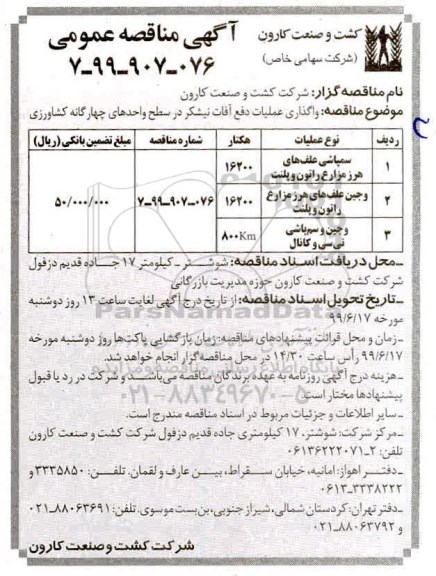 کشت و صنعت کارون
(شرکت سهامی خاص)
آگهی مناقصه عمومی
۷-۹۹-۹۰۷-۰۷۶
نام مناقصه گزار: شرکت کشت و صنعت کارون
موضوع مناقصه: واگذاری عملیات دفع آفات نیشکر در سطح واحدهای چهارگانه کشاورزی
ردیف نوع عملیات هکتار شماره مناقصه مبلغ تضمین بانکی (ریال)
۱ سمپاشی علف‌های هرز مزارع راتون و پلنت ۱۶۲۰۰
۲ وجین علف‌های هرز مزارع راتون و پلنت ۱۶۲۰۰ ۷-۹۹-۹۰۷-۰۷۶ ۵۰/۰۰۰/۰۰۰
۳ وجین و سم‌پاشی تی‌سی و کانال ۸۰۰Km
ـ محل دریافت اسناد مناقصه: شوشتر ـ کیلومتر ۱۷ جاده قدیم دزفول
شرکت کشت و صنعت کارون حوزه مدیریت بازرگانی
ـ تاریخ تحویل اسناد مناقصه: از تاریخ درج آگهی لغایت ساعت ۱۳ روز دوشنبه
مورخه ۹۹/۶/۱۷
ـ زمان و محل قرائت پیشنهادهای مناقصه: زمان بازگشایی پاکت‌ها روز دوشنبه مورخه
۹۹/۶/۱۷ رأس ساعت ۱۴/۳۰ در محل مناقصه‌گزار انجام خواهد شد.
ـ هزینه درج آگهی روزنامه به عهده برندگان مناقصه می‌باشد و شرکت در رد یا قبول
پیشنهادها مختار است.
ـ سایر اطلاعات و جزئیات مربوط در اسناد مناقصه مندرج است.
ـ مرکز شرکت: شوشتر، ۱۷ کیلومتری جاده قدیم دزفول شرکت کشت و صنعت کارون
تلفن: ۲-۰۶۱۳۶۲۲۲۰۷۱
ـ دفتر اهواز: امانیه، خیابان سقراط، بین عارف و لقمان. تلفن: ۳۳۳۵۸۵۰ و
۰۶۱۳-۳۳۳۸۲۲۲
ـ دفتر تهران: کردستان شمالی، شیراز جنوبی، بن‌بست موسوی. تلفن: ۸۸۰۶۳۶۹۱-۰۲۱
و ۸۸۰۶۳۷۹۲-۰۲۱
شرکت کشت و صنعت کارون
ParsNamadData
۰۲۱-۸۸۳۴۹۶۷۰-۵